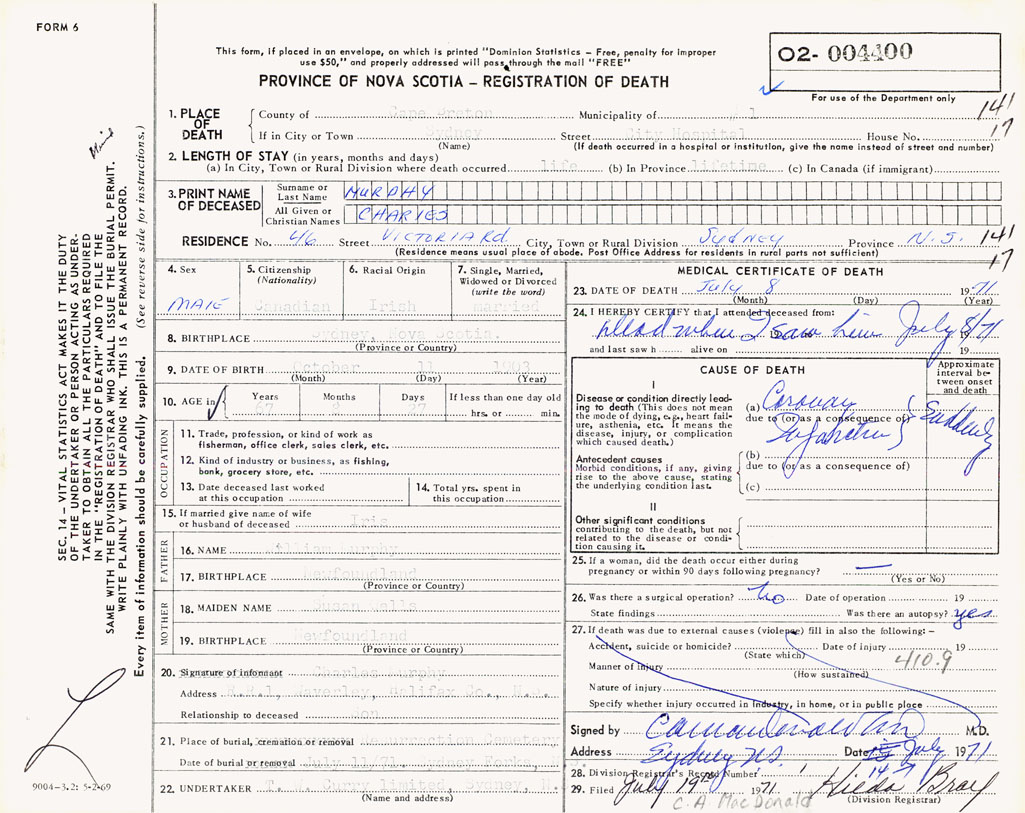 FORM 6
This form, if placed in an envelope, on which is printed "Dominion Statistics – Free, penalty for improper
use $50," and properly addressed will pass through the mail "FREE"
PROVINCE OF NOVA SCOTIA – REGISTRATION OF DEATH
02- 004400
For use of the Department only
141
17
1. PLACE OF DEATH
County of Cape Breton Municipality of
If in City or Town Sydney Street City Hospital House No.
(Name) (If death occurred in a hospital or institution, give the name instead of street and number)
2. LENGTH OF STAY (in years, months and days)
(a) In City, Town or Rural Division where death occurred life (b) In Province lifetime (c) In Canada (if immigrant)
3. PRINT NAME OF DECEASED
Surname or Last Name MURPHY
All Given or Christian Names CHARLES
RESIDENCE No. 46 Street VICTORIA Rd. City, Town or Rural Division SYDNEY Province N.S. 141
(Residence means usual place of abode. Post Office Address for residents in rural parts not sufficient) 17
4. Sex MALE
5. Citizenship (Nationality) Canadian
6. Racial Origin Irish
7. Single, Married, Widowed or Divorced (write the word) married
8. BIRTHPLACE Sydney, Nova Scotia.
(Province or Country)
9. DATE OF BIRTH October 11 1903
(Month) (Day) (Year)
10. AGE in Years Months Days If less than one day old
67 27 hrs. or min.
OCCUPATION
11. Trade, profession, or kind of work as
fisherman, office clerk, sales clerk, etc.
12. Kind of industry or business, as fishing,
bank, grocery store, etc.
13. Date deceased last worked
at this occupation
14. Total yrs. spent in
this occupation
15. If married give name of wife
or husband of deceased Iris
FATHER
16. NAME William Murphy
17. BIRTHPLACE Newfoundland
(Province or Country)
MOTHER
18. MAIDEN NAME Susan Wells
19. BIRTHPLACE Newfoundland
(Province or Country)
20. Signature of informant Charles Murphy
Address R.R.1, Waverley, Halifax Co., N.S.
Relationship to deceased son
21. Place of burial, cremation or removal Resurrection Cemetery
Date of burial or removal July 11/71
22. UNDERTAKER T. W. Curry limited, Sydney, N.
(Name and address)
MEDICAL CERTIFICATE OF DEATH
23. DATE OF DEATH July 8 1971
(Month) (Day) (Year)
24. I HEREBY CERTIFY that I attended deceased from:
Dead when I saw him July 8/71
19 19
and last saw h alive on 19
CAUSE OF DEATH
Approximate interval between onset and death
I
Disease or condition directly leading
to death (This does not mean
the mode of dying, e.g., heart failure,
asthenia, etc. It means the
disease, injury, or complication
which caused death.)
(a) Coronary
due to (or as a consequence of)
Infarction
Suddenly
Antecedent causes
Morbid conditions, if any, giving
rise to the above cause, stating
the underlying condition last.
(b)
due to (or as a consequence of)
(c)
II
Other significant conditions
contributing to the death, but not
related to the disease or condition
causing it.
25. If a woman, did the death occur either during
pregnancy or within 90 days following pregnancy? —
(Yes or No)
26. Was there a surgical operation? no Date of operation 19
State findings Was there an autopsy? yes
27. If death was due to external causes (violence) fill in also the following: –
Accident, suicide or homicide? Date of injury 19
(State which) 410.9
Manner of injury
(How sustained)
Nature of injury
Specify whether injury occurred in industry, in home, or in public place
Signed by M.D.
Address Sydney N.S. Date July 1971
28. Division Registrar's Record Number 147
29. Filed July 19th 1971 Hilda
(Division Registrar)
C. A MacDonald
SEC. 14 – VITAL STATISTICS ACT MAKES IT THE DUTY
OF THE UNDERTAKER OR PERSON ACTING AS UNDER-
TAKER TO OBTAIN ALL THE PARTICULARS REQUIRED
IN THE "REGISTRATION OF DEATH" AND TO FILE THE
SAME WITH THE DIVISION REGISTRAR WHO SHALL ISSUE THE BURIAL PERMIT.
WRITE PLAINLY WITH UNFADING INK. THIS IS A PERMANENT RECORD.
Every item of information should be carefully supplied. (See reverse side for instructions.)
9004-3.2: 5-2-69